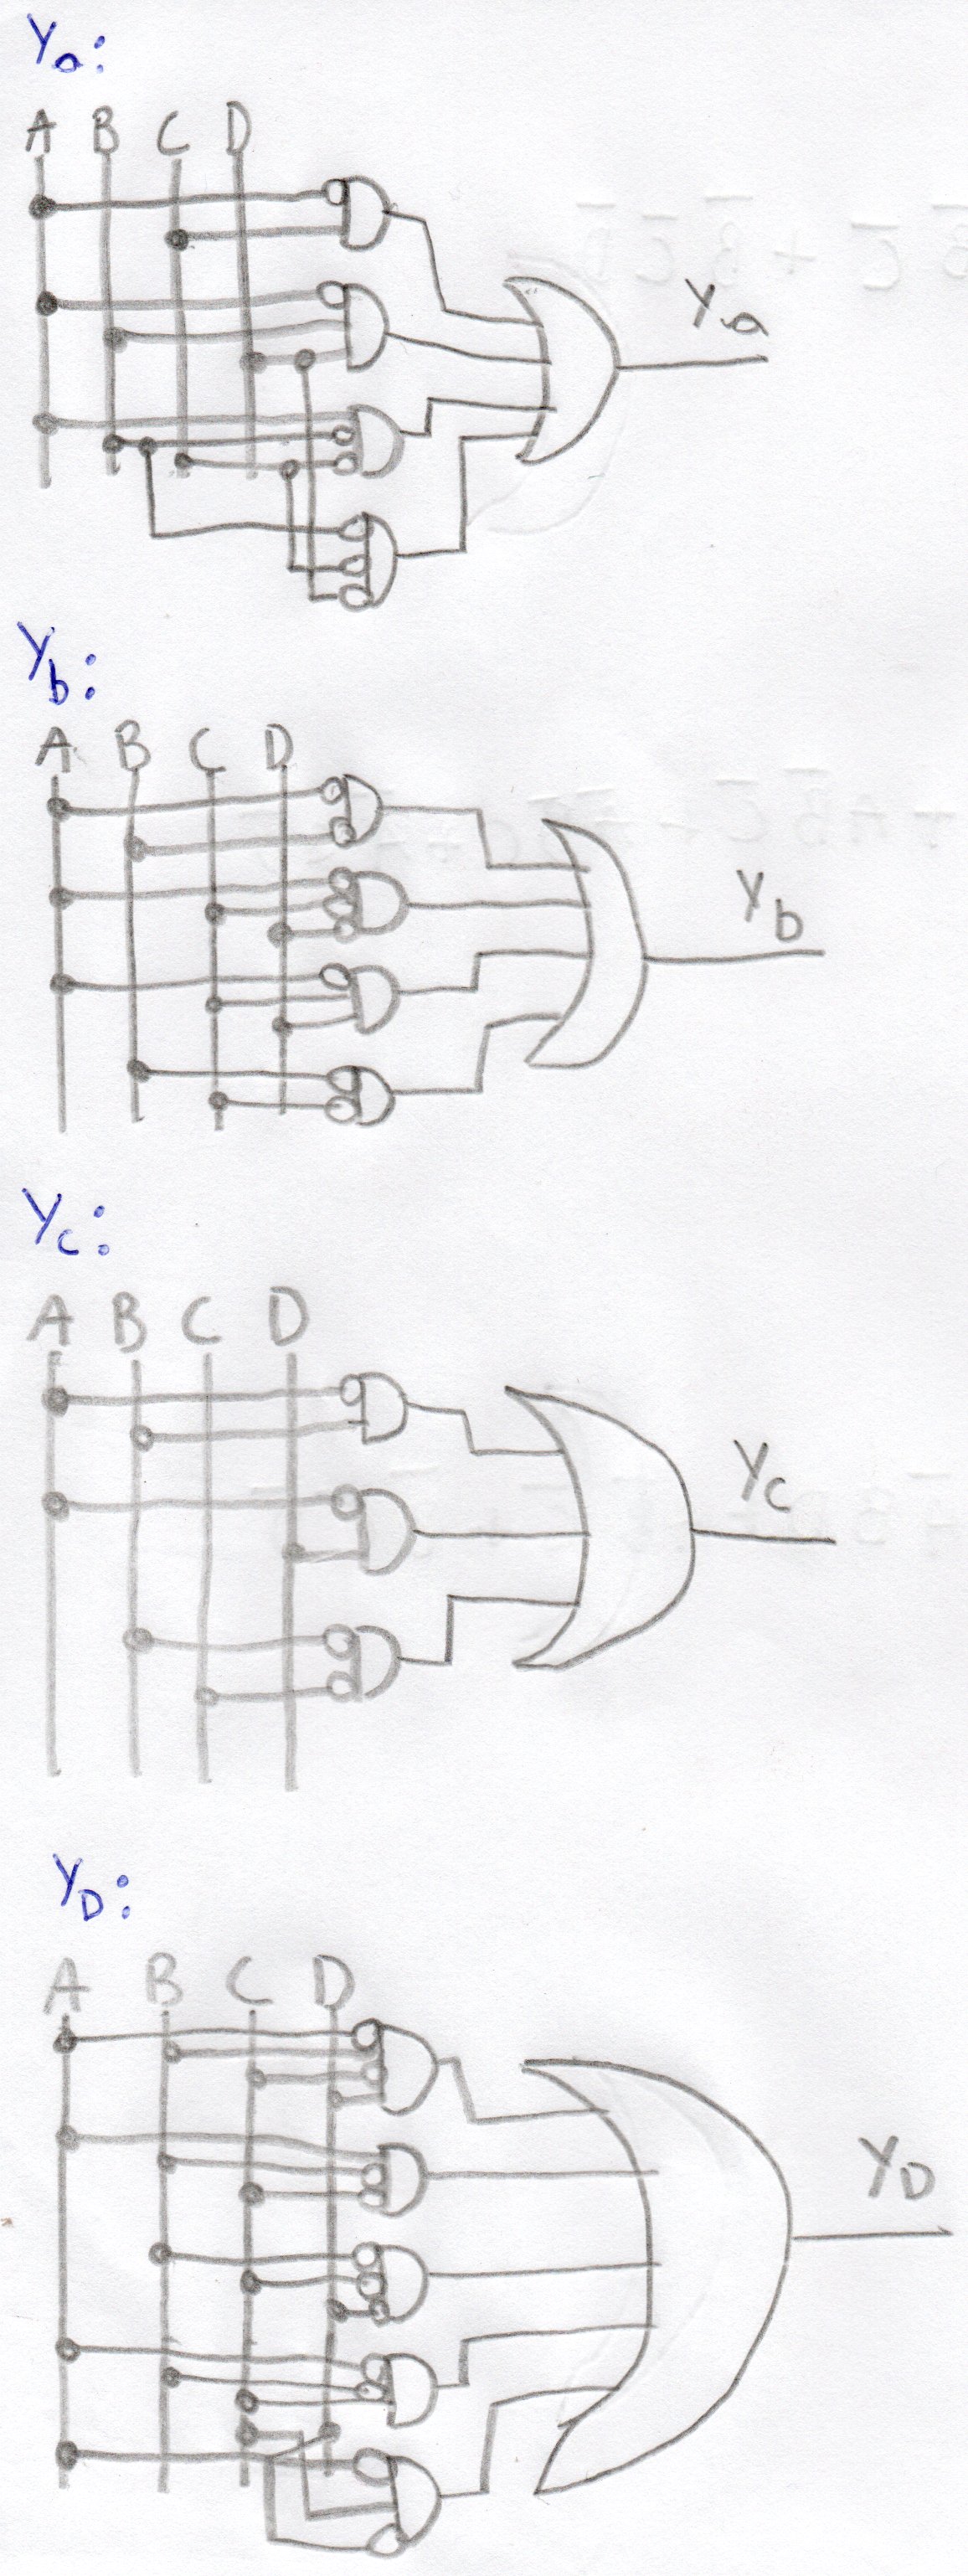 Ya:
A B C D
Ya
Yb:
A B C D
Yb
Yc:
A B C D
Yc
YD:
A B C D
YD